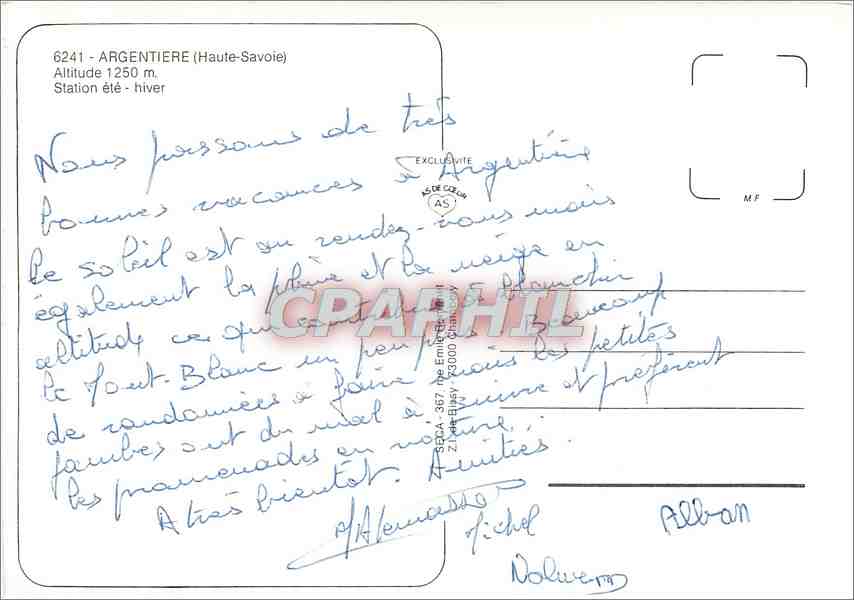 6241 - ARGENTIERE (Haute-Savoie)
Altitude 1250 m.
Station été - hiver
Nous passons de très
bonnes vacances à Argentière
le soleil est au rendez-vous mais
également la pluie et la neige en
altitude ce qui contribue à blanchir
le Mont-Blanc un peu plus. Beaucoup
de randonnées à faire mais les petites
jambes ont du mal à suivre et préfèrent
les promenades en voiture...
A très bientôt. Amitiés.
Michel
Nolwenn
Alban
EXCLUSIVITE
AS DE CŒUR
AS
M.F
SECA - 367, rue Emile
Z.I. de Bissy - 73000 Chambéry
CPAPHIL